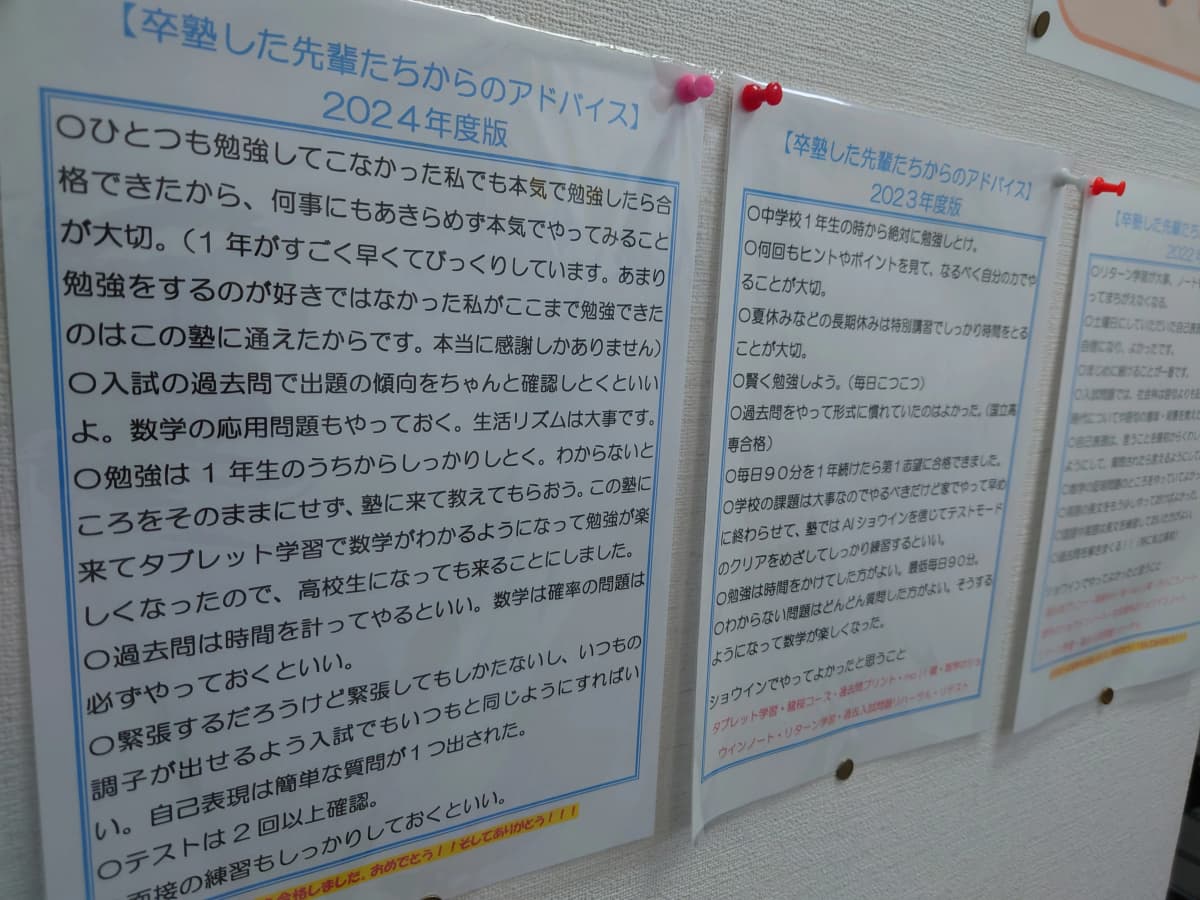 【卒塾した先輩たちからのアドバイス】
2024年度版
〇ひとつも勉強してこなかった私でも本気で勉強したら合
格できたから、何事にもあきらめず本気でやってみること
が大切。（1年がすごく早くてびっくりしています。あまり
勉強をするのが好きではなかった私がここまで勉強できた
のはこの塾に通えたからです。本当に感謝しかありません）
〇入試の過去問で出題の傾向をちゃんと確認しとくといい
よ。数学の応用問題もやっておく。生活リズムは大事です。
〇勉強は1年生のうちからしっかりしとく。わからないと
ころをそのままにせず、塾に来て教えてもらおう。この塾に
来てタブレット学習で数学がわかるようになって勉強が楽
しくなったので、高校生になっても来ることにしました。
〇過去問は時間を計ってやるといい。数学は確率の問題は
必ずやっておくといい。
〇緊張するだろうけど緊張してもしかたないし、いつもの
調子が出せるよう入試でもいつもと同じようにすればい
い。自己表現は簡単な質問が1つ出された。
〇テストは2回以上確認。
面接の練習もしっかりしておくといい。
合格しました、おめでとう！！そしてありがとう！！！
【卒塾した先輩たちからのアドバイス】
2023年度版
〇中学校1年生の時から絶対に勉強しとけ。
〇何回もヒントやポイントを見て、なるべく自分の力でや
ることが大切。
〇夏休みなどの長期休みは特別講習でしっかり時間をとる
ことが大切。
〇賢く勉強しよう。（毎日こつこつ）
〇過去問をやって形式に慣れていたのはよかった。（国立高
専合格）
〇毎日90分を1年続けたら第1志望に合格できました。
〇学校の課題は大事なのでやるべきだけど家でやって早め
に終わらせて、塾ではAIショウインを信じてテストモード
のクリアをめざしてしっかり練習するといい。
〇勉強は時間をかけてした方がよい。最低毎日90分。
〇わからない問題はどんどん質問した方がよい。そうする
ようになって数学が楽しくなった。
ショウインでやってよかったと思うこと
タブレット学習・競桜コース・過去問プリント・
ウインノート・リターン学習・過去入試問題リハーサル・リテスト
【卒塾した先輩たち
2022年
〇リターン学習が大事。ノート
ってまちがえなくなる。
〇土曜日にしていただいた自己表
自信になり、よかったです。
〇まじめに続けることが一番です。